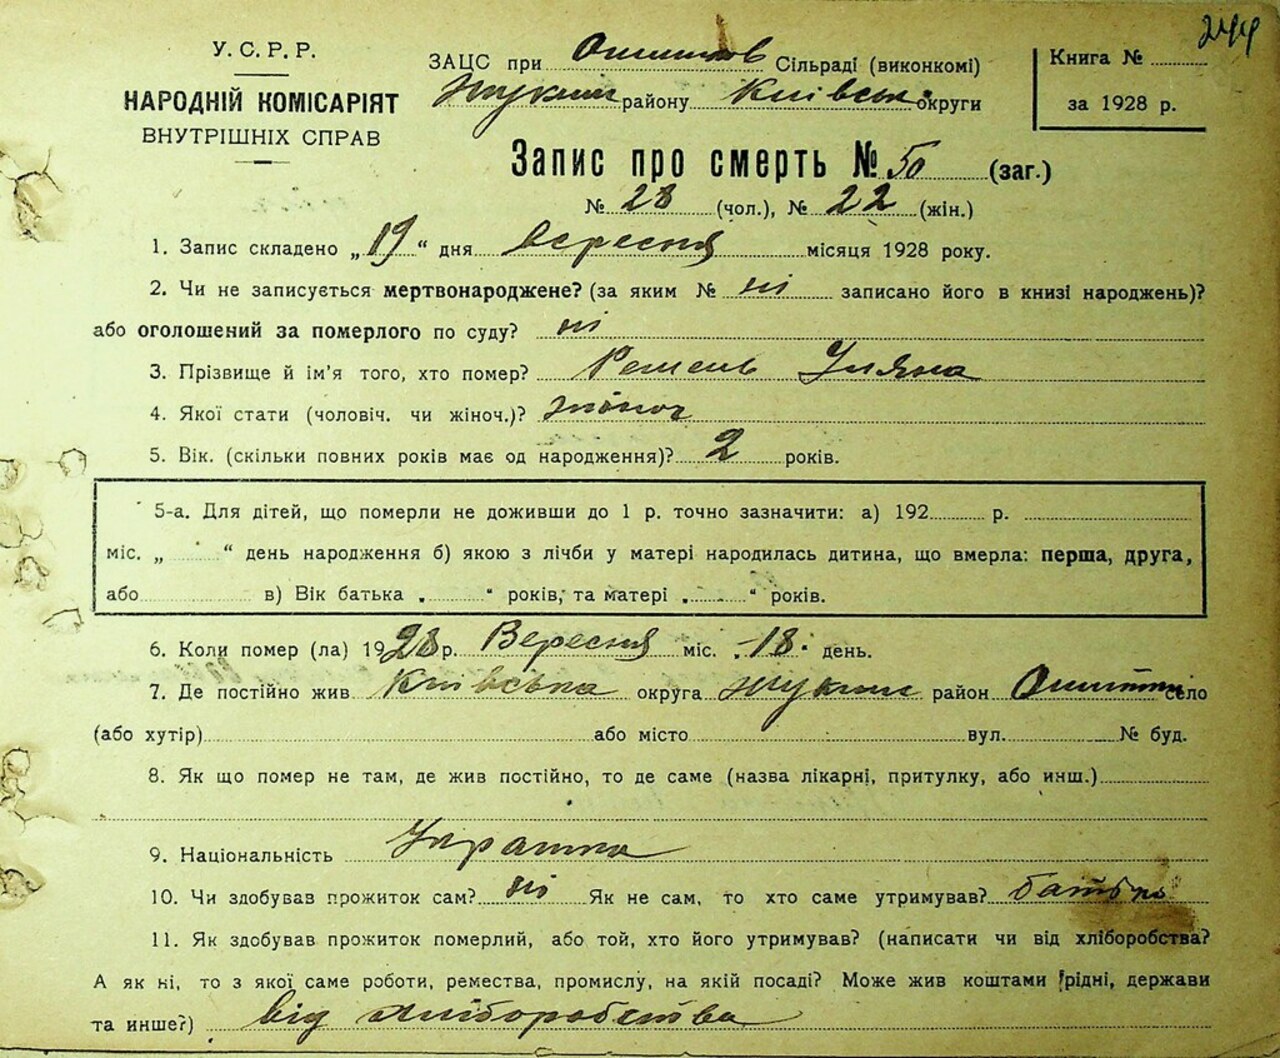 244
У. С. Р. Р.
НАРОДНІЙ КОМІСАРІЯТ
ВНУТРІШНІХ СПРАВ
ЗАЦС при Сільраді (виконкомі)
Жукин району Київськ округи
Книга №
за 1928 р.
Запис про смерть № 50 (заг.)
№ 28 (чол.), № 22 (жін.)
1. Запис складено „19“ дня вересня місяця 1928 року.
2. Чи не записується мертвонароджене? (за яким № ні записано його в книзі народжень)?
або оголошений за померлого по суду? ні
3. Прізвище й ім’я того, хто помер? Уляна
4. Якої стати (чоловіч. чи жіноч.)? жіноч
5. Вік. (скільки повних років має од народження)? 2 років.
5-а. Для дітей, що померли не доживши до 1 р. точно зазначити: а) 192 р.
міс. „ “ день народження б) якою з лічби у матері народилась дитина, що вмерла: перша, друга,
або в) Вік батька „ “ років, та матері „ “ років.
6. Коли помер (ла) 1928 р. Вересня міс. 18 день.
7. Де постійно жив Київська округа Жукин район село
(або хутір) або місто вул. № буд.
8. Як що помер не там, де жив постійно, то де саме (назва лікарні, притулку, або инш.)
9. Національність
10. Чи здобував прожиток сам? ні Як не сам, то хто саме утримував? батько
11. Як здобував прожиток померлий, або той, хто його утримував? (написати чи від хліборобства?
А як ні, то з якої саме роботи, ремества, промислу, на якій посаді? Може жив коштами рідні, держави
та инше?) від хліборобства